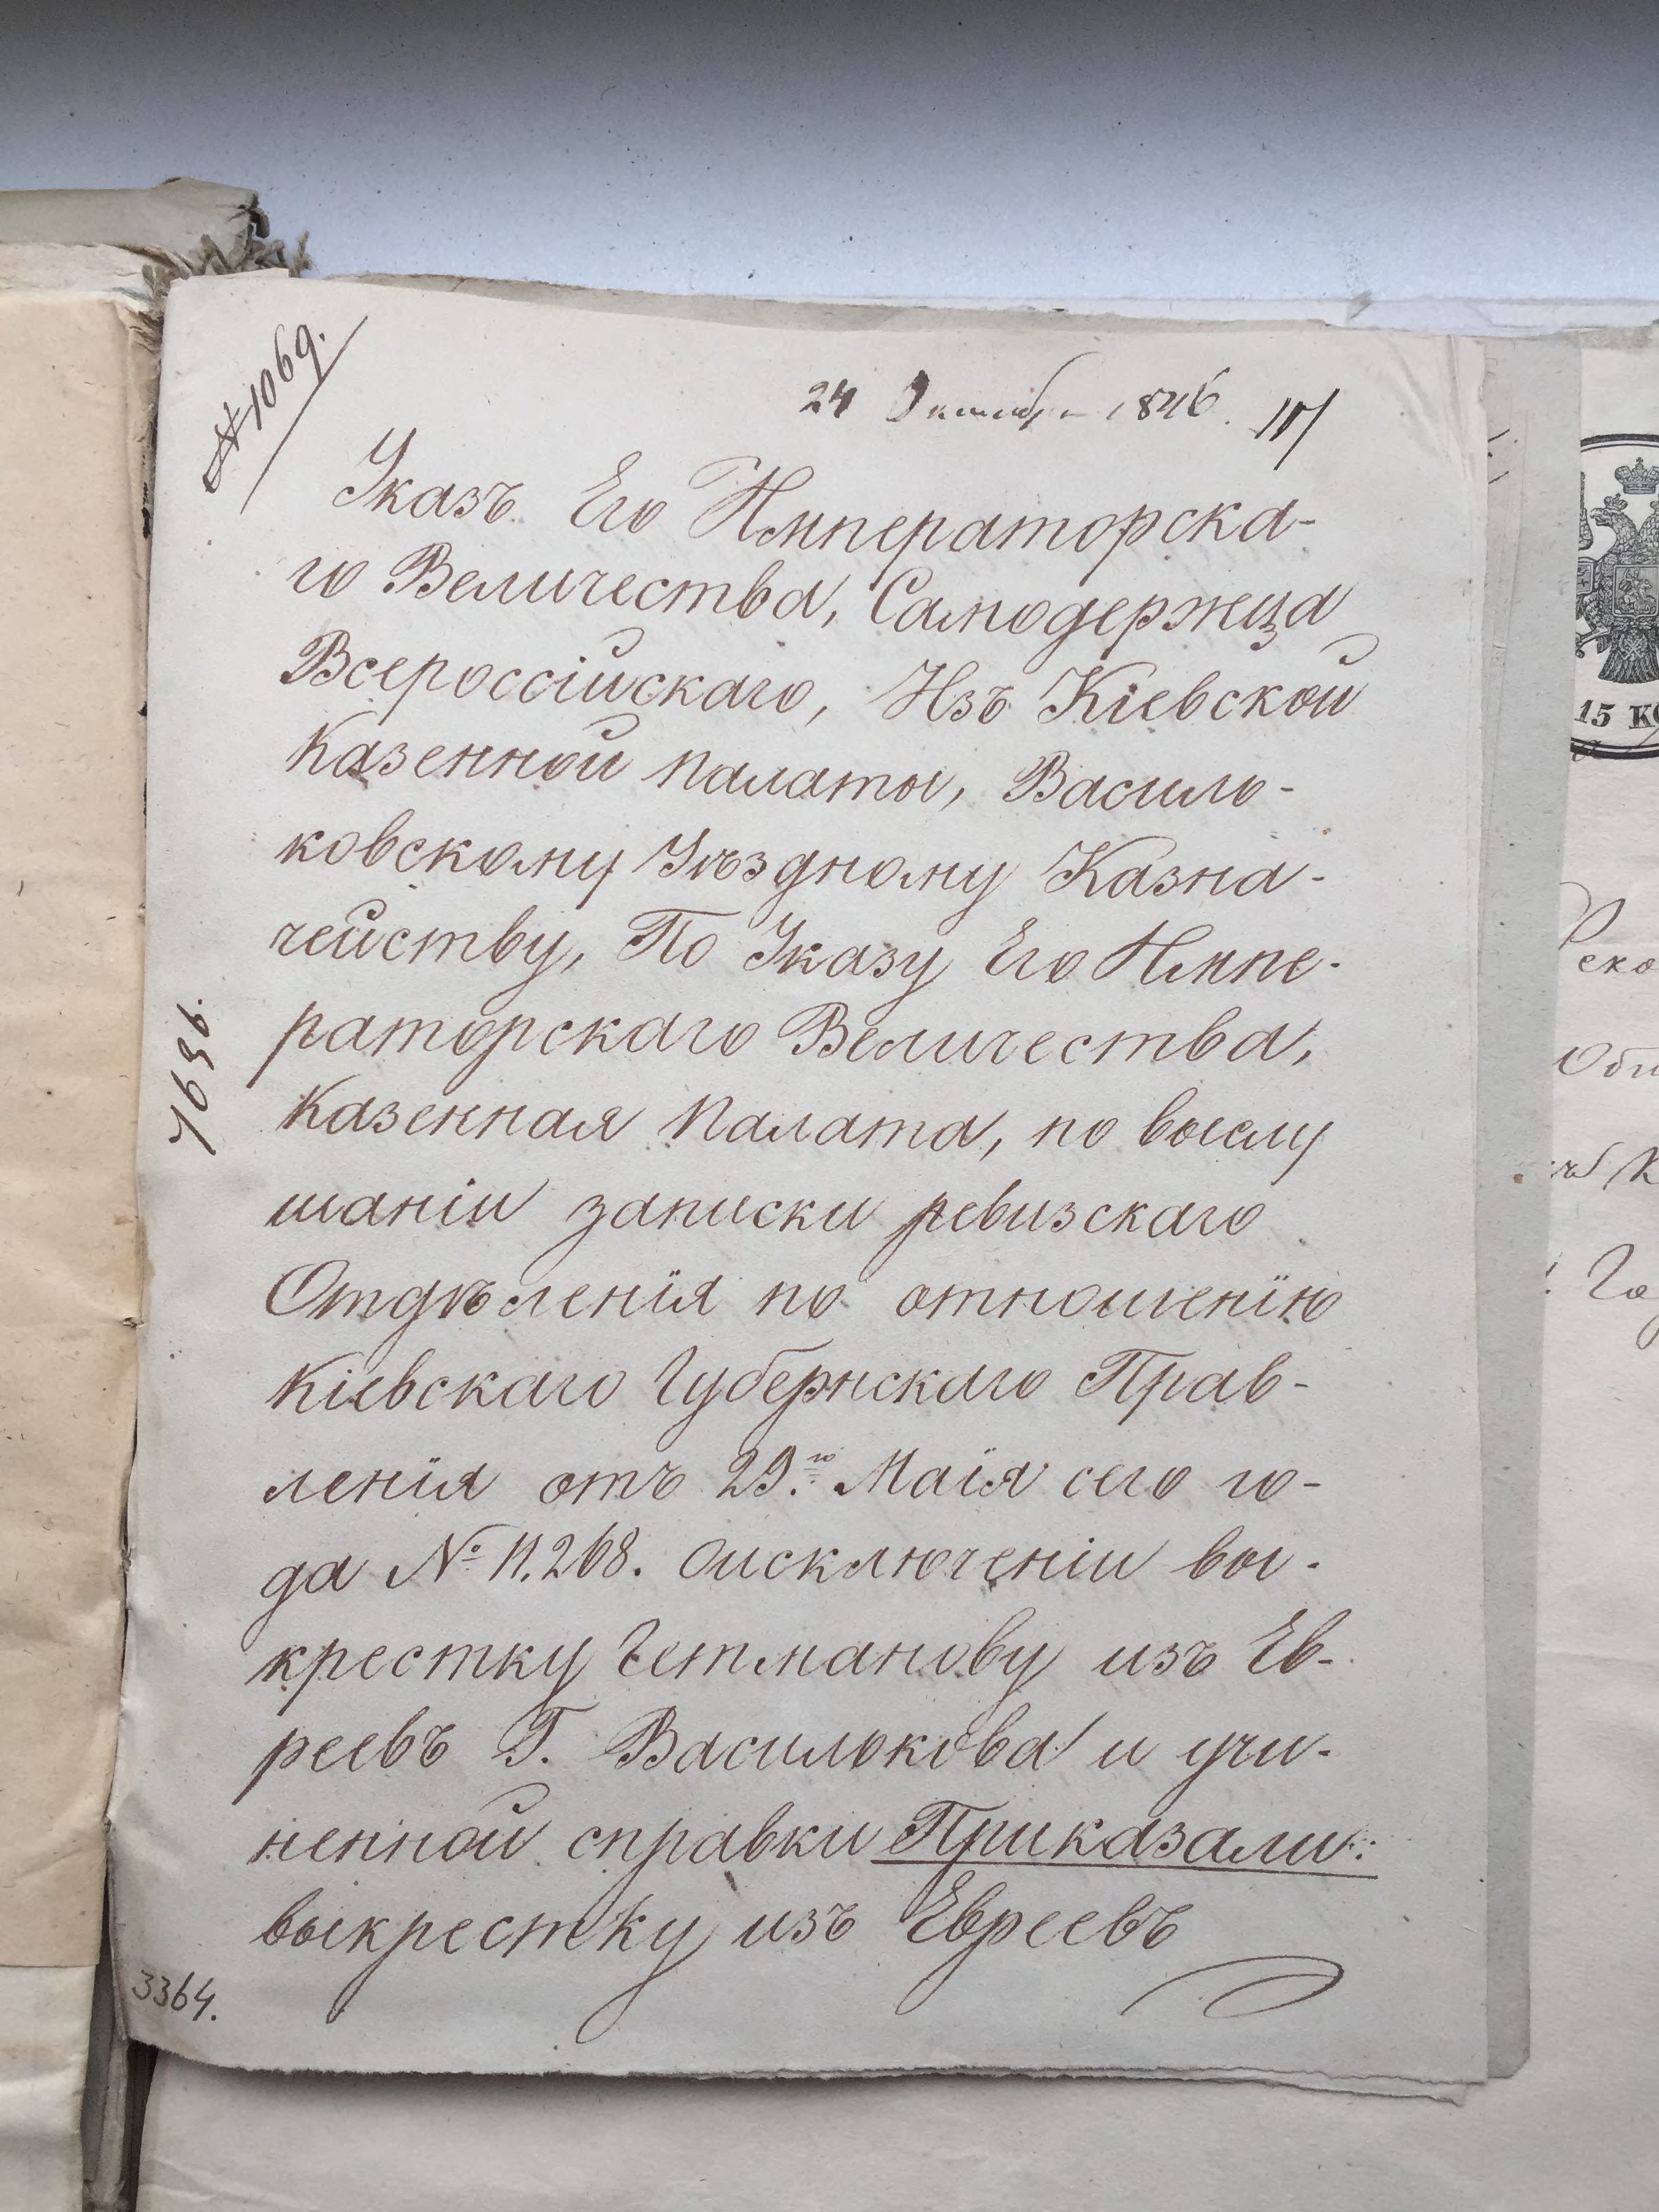 № 1069.
24 Октября 1846.
Указъ Его Императорска-
го Величества, Самодержца
Всероссійскаго, Изъ Кіевской
Казенной Палаты, Василь-
ковскому Уѣздному Казна-
чейству, По Указу Его Импе-
раторскаго Величества,
Казенная Палата, по выслу
шаніи записки ревизскаго
Отдѣленія по отношенію
Кіевскаго Губернскаго Прав-
ленія отъ 29.го Маія сего го-
да № 11.268. о исключеніи вы-
крестку Гетманову изъ Ев-
реевъ Г. Василькова и учи-
ненной справки Приказали:
выкрестку изъ Евреевъ
7696.
3364.
15
еко